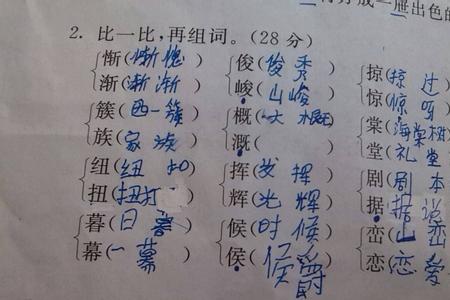 出色的
2. 比一比,再组词。(28分)
惭(惭愧) 俊(俊秀) 掠(掠过
渐(渐渐) 峻(山峻) 惊(惊呀
簇(一簇) 概(大概) 棠(海棠树
族(家族) 溉( ) 堂(礼堂
纽(纽扣) 挥(发挥) 剧(剧本
扭(扭打) 辉(光辉) 据(据说
暮(日暮) 候(时候) 峦(山峦
幕(一幕) 侯(侯爵) 恋(恋爱